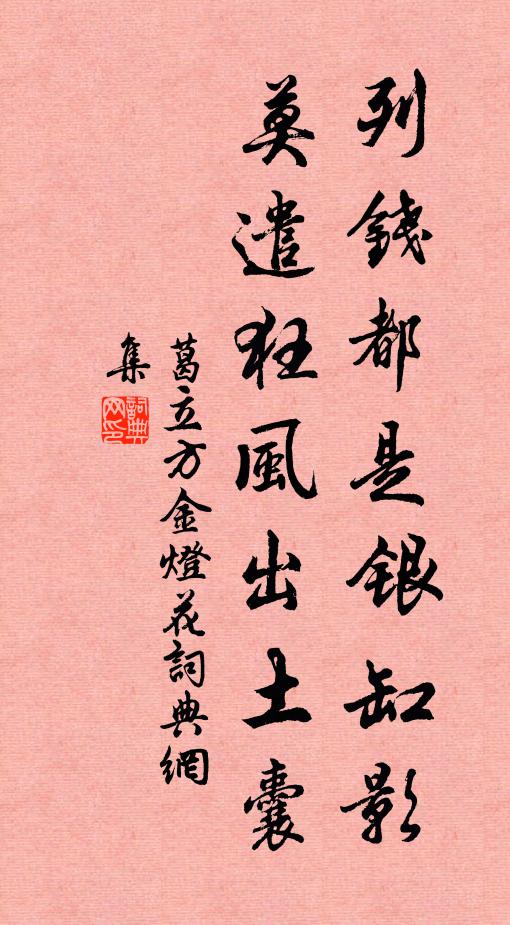 列錢都是銀缸影
莫遣狂風出土囊
葛立方金燈花詞典網
集
詞典
网印